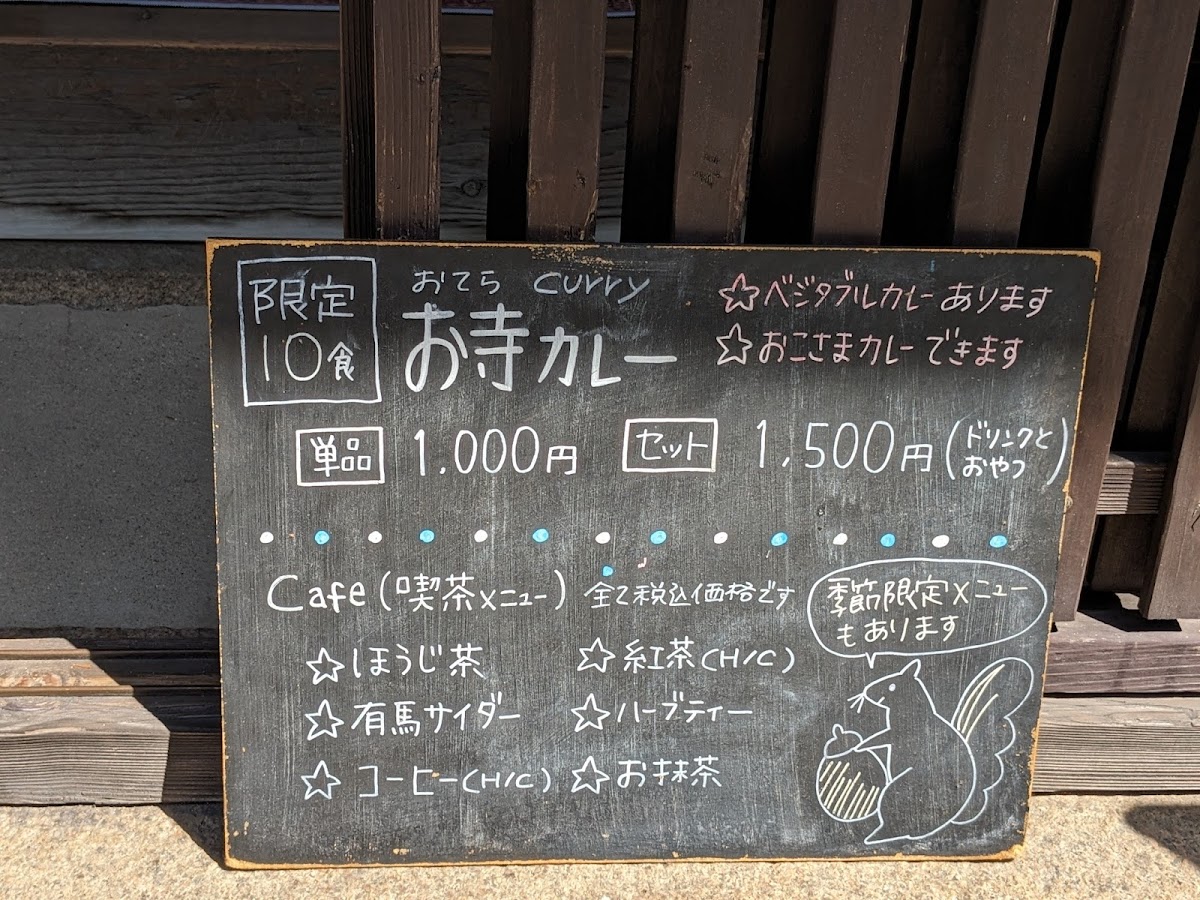 限定
10食
おてら curry
お寺カレー
☆ベジタブルカレーあります
☆おこさまカレーできます
単品 1,000円 セット 1,500円(ドリンクとおやつ)
Cafe(喫茶メニュー) 全て税込価格です
☆ほうじ茶
☆有馬サイダー
☆コーヒー(H/C)
☆紅茶(H/C)
☆ハーブティー
☆お抹茶
季節限定メニュー
もあります